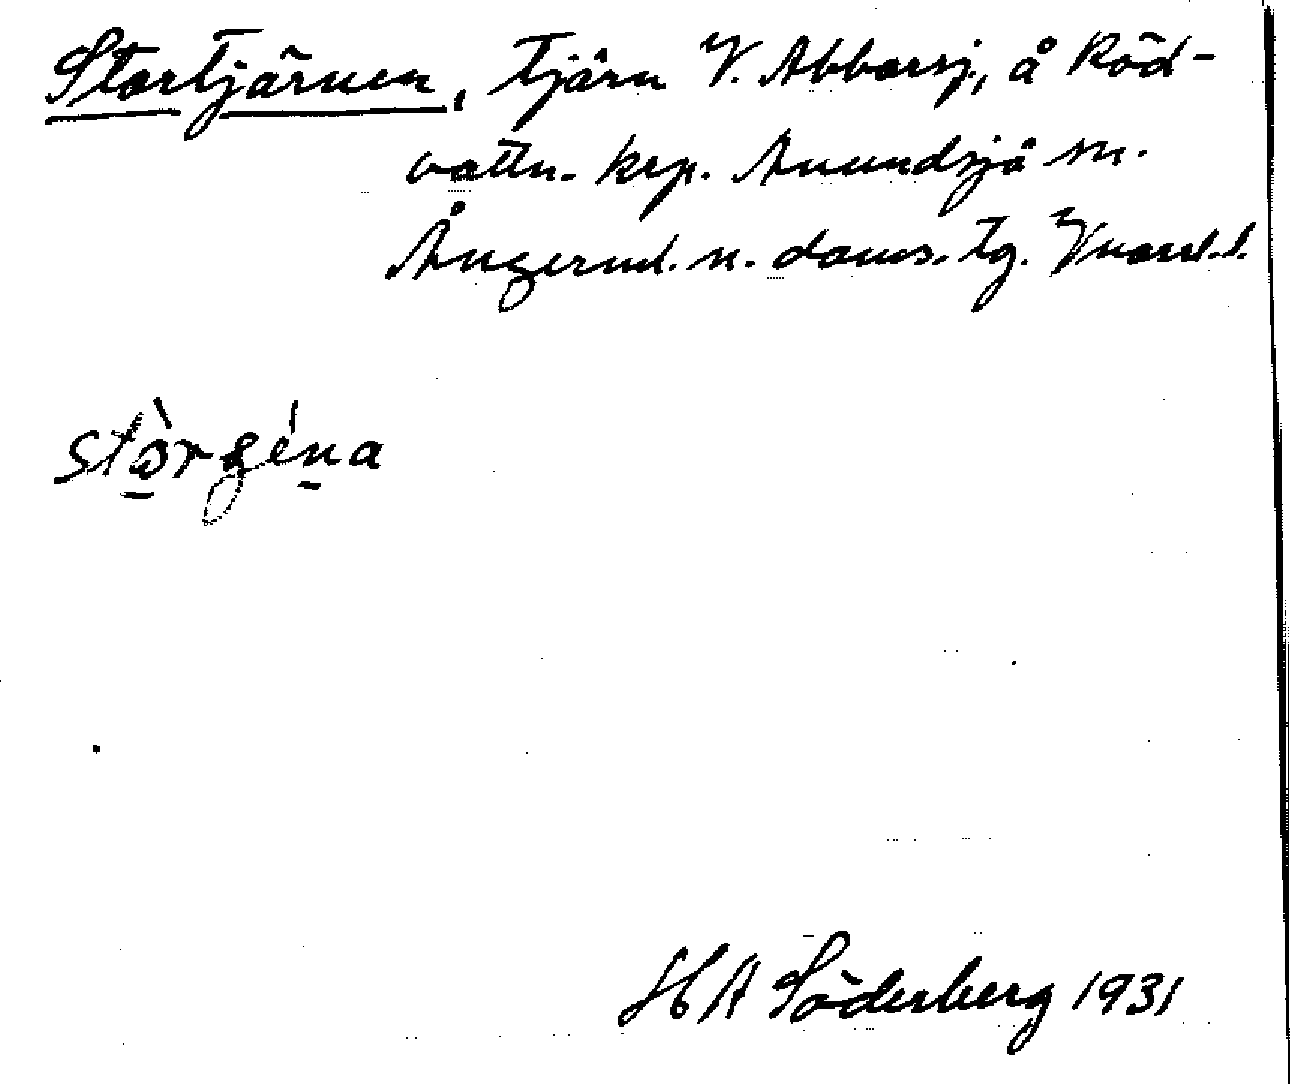 Stortjärnen, tjärn V. Abborsj., å Röd-
vattn. krp. Anundsjö sn.
Ångerml. n. doms. tg. Vnorrl. l.
stòrgéna
H A Söderberg 1931